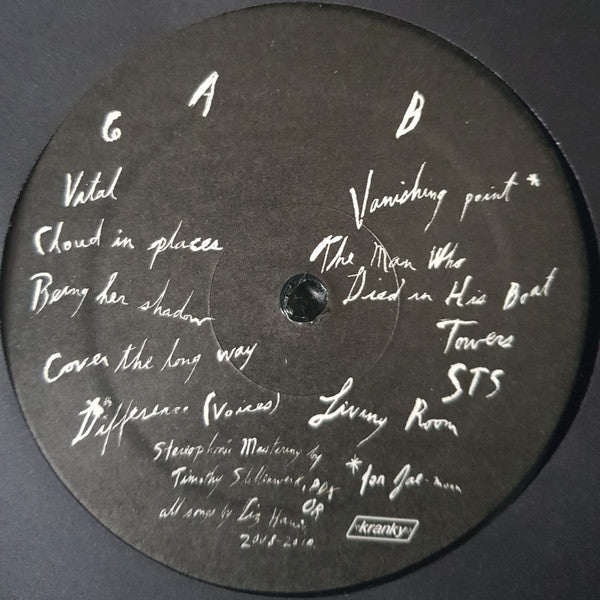 A
6
Vital
Cloud in places
Being her shadow
Cover the long way
Difference (Voices)
B
Vanishing point *
The Man Who
Died in His Boat
Towers
STS
Living Room
Stereophonic Mastering by
Timothy Stollenwerk, PDX
OR
all songs by Liz Harris,
2008-2010
*for Jae-
kranky